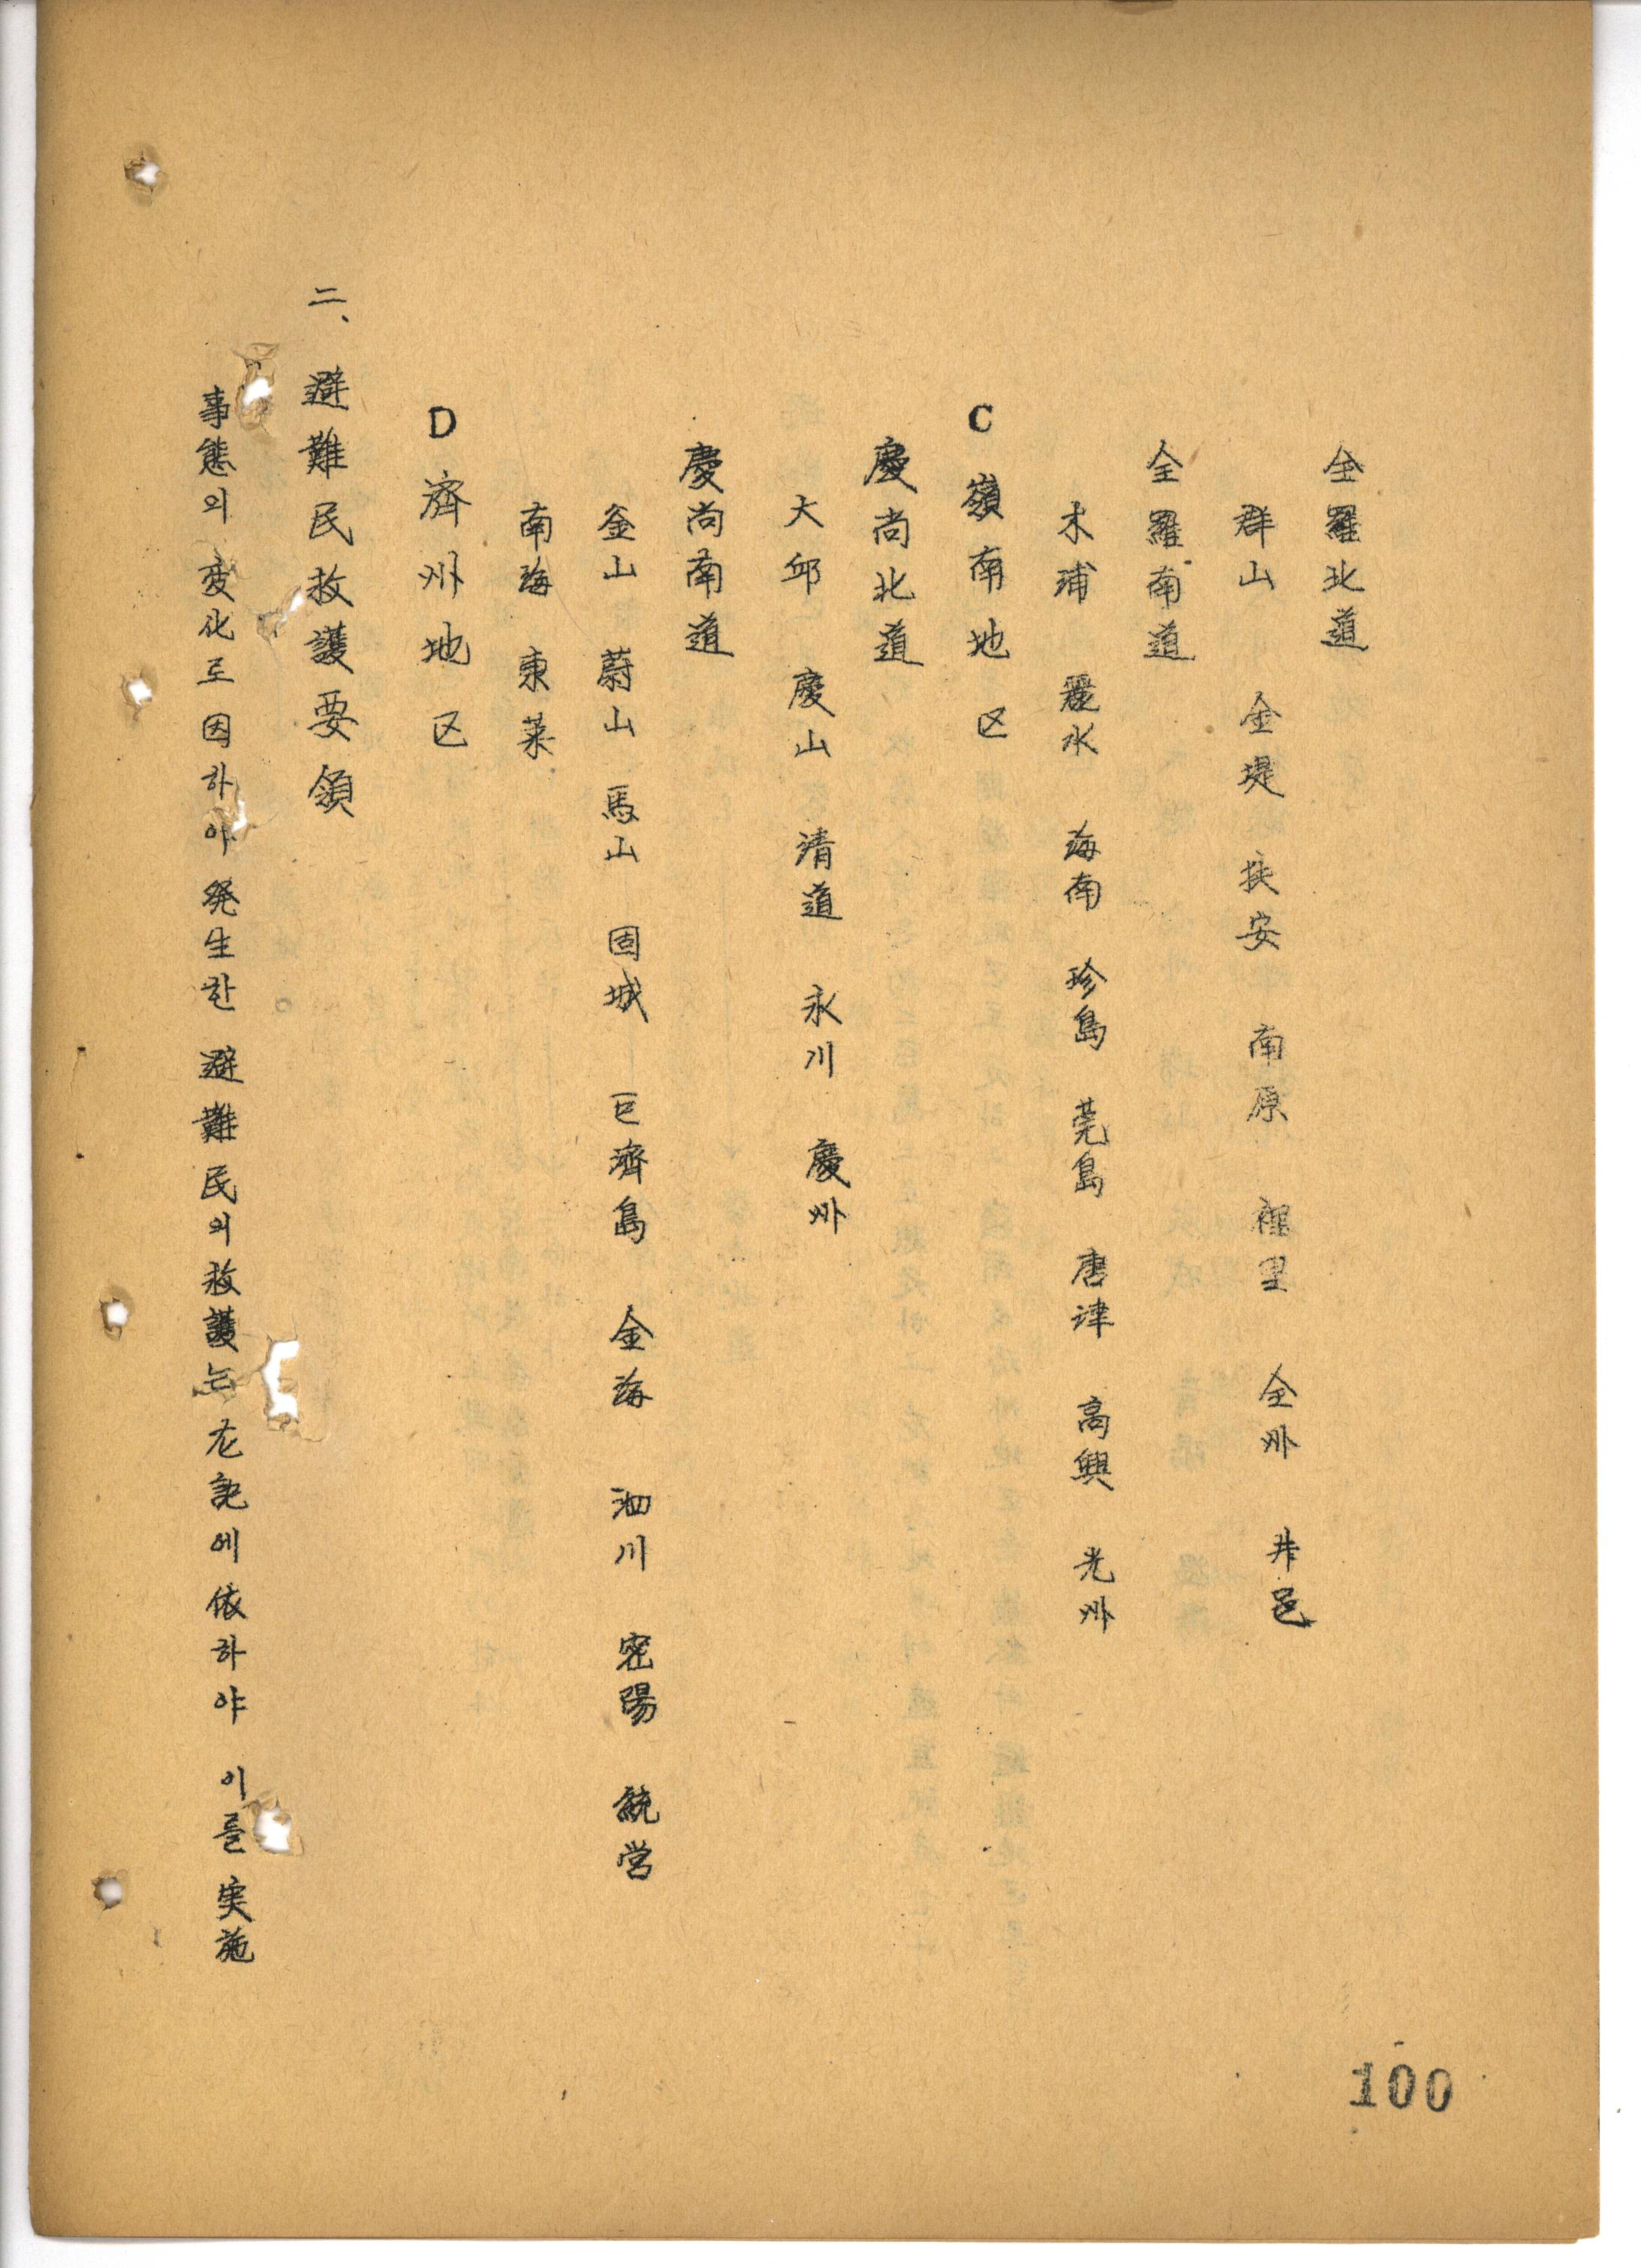 全羅北道
群山 金堤 扶安 南原 裡里 全州 井邑
全羅南道
木浦 麗水 海南 珍島 莞島 唐津 高興 光州
C 嶺南地区
慶尚北道
大邱 慶山 清道 永川 慶州
慶尚南道
釜山 蔚山 馬山 固城 巨濟島 金海 泗川 密陽 統営
南海 東莱
D 濟州地区
二、避難民救護要領
事態의 変化로 因하야 発生한 避難民의 救護는 左記에 依하야 이를 実施
100